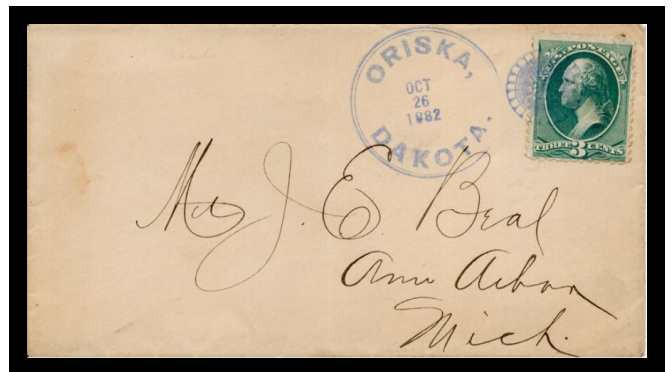 ORISKA,
OCT
26
1882
DAKOTA.
U.S. POSTAGE
THREE 3 CENTS
J. E. Beal
Ann Arbor
Mich.